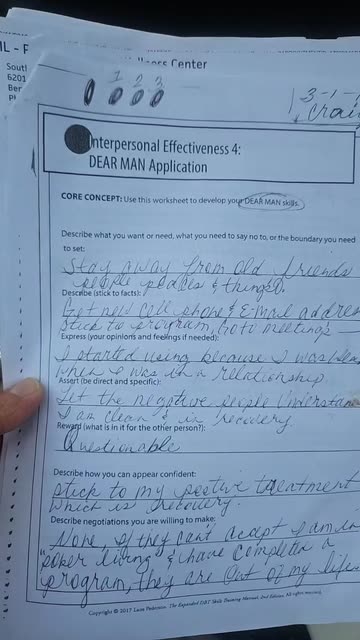 Center
South
6201
Ber
1 2 3
0 0 0 0
3-1-
Interpersonal Effectiveness 4:
DEAR MAN Application
CORE CONCEPT: Use this worksheet to develop your DEAR MAN skills.
Describe what you want or need, what you need to say no to, or the boundary you need
to set:
Stay away from old friends
people places & things.
Describe (stick to facts):
Get new cell phone & E-mail address
Stick to program, go to meetings
Express (your opinions and feelings if needed):
I started using because I was
when I was in a relationship.
Assert (be direct and specific):
Let the negative people Understand
I am clean & in recovery.
Reward (what is in it for the other person?):
Questionable
Describe how you can appear confident:
Stick to my postive treatment
Which is recovery.
Describe negotiations you are willing to make:
None if they cant accept I am in
living & have completed a
program, they are Out of my life
Copyright © 2017 Lane Pederson. The Expanded DBT Skills Training Manual, 2nd Edition. All rights reserved.